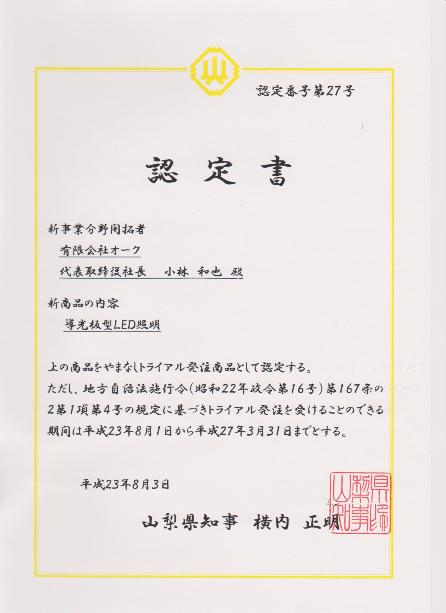 認定番号第27号
認定書
新事業分野開拓者
有限会社オーク
代表取締役社長 小林 和也 殿
新商品の内容
導光板型LED照明
上の商品をやまなしトライアル発注商品として認定する。
ただし、地方自治法施行令(昭和22年政令第16号)第167条の
2第1項第4号の規定に基づきトライアル発注を受けることのできる
期間は平成23年8月1日から平成27年3月31日までとする。
平成23年8月3日
山梨県知事 横内 正明